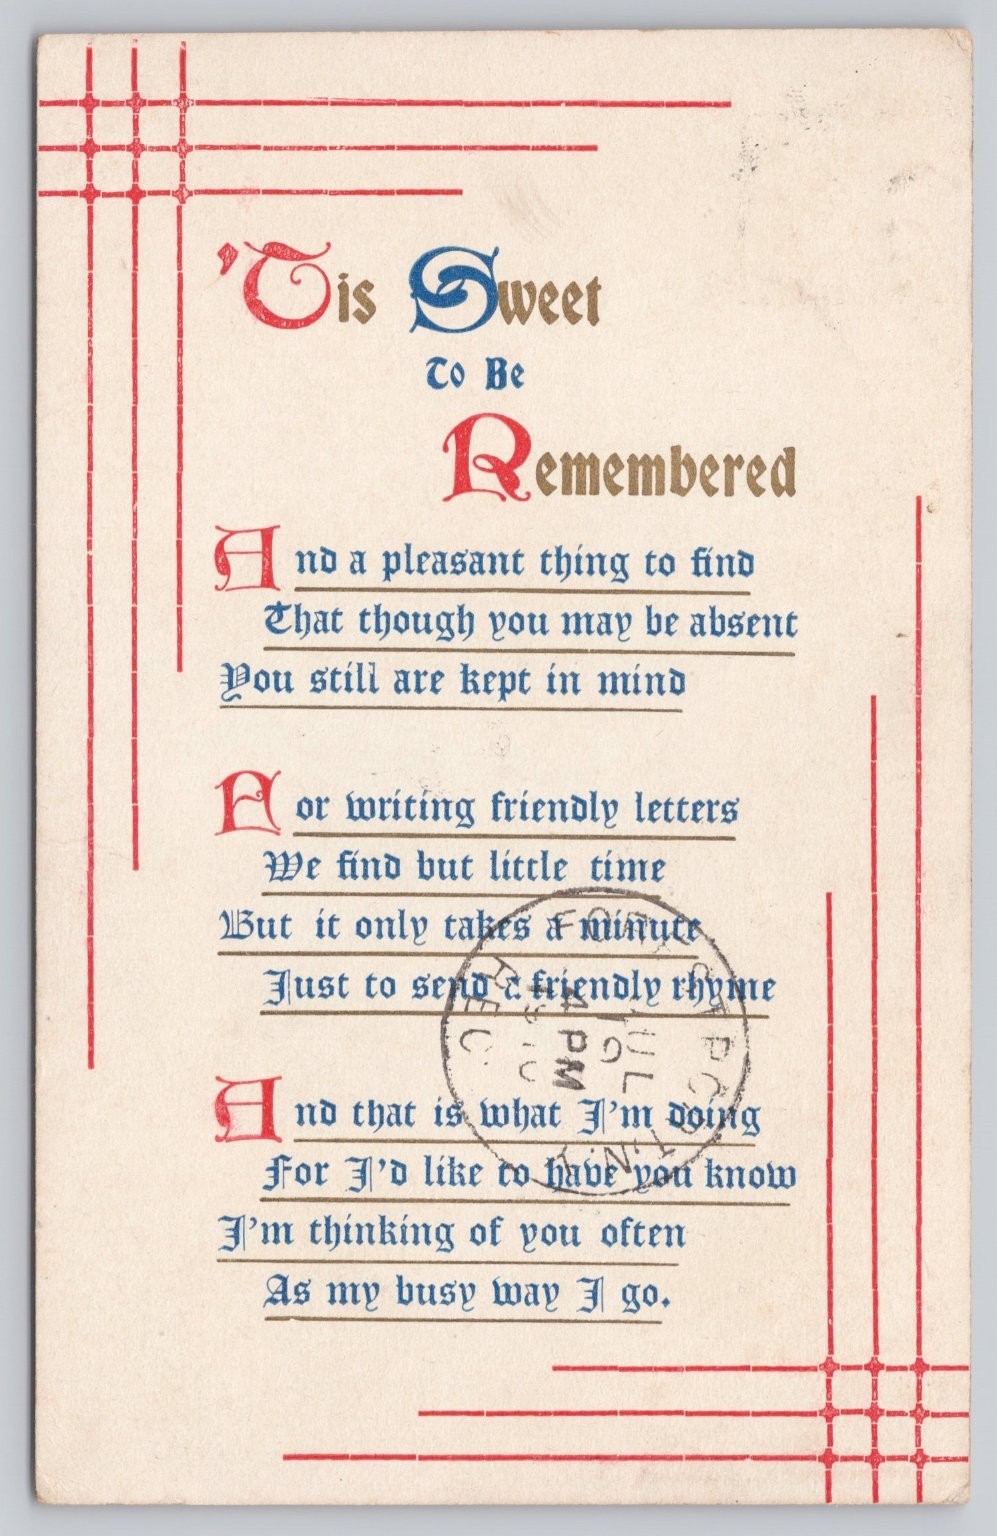 'Tis Sweet
To Be
Remembered
And a pleasant thing to find
That though you may be absent
You still are kept in mind
For writing friendly letters
We find but little time
But it only takes a minute
Just to send a friendly rhyme
And that is what I'm doing
For I'd like to have you know
I'm thinking of you often
As my busy way I go.
JUL
4 PM
REC